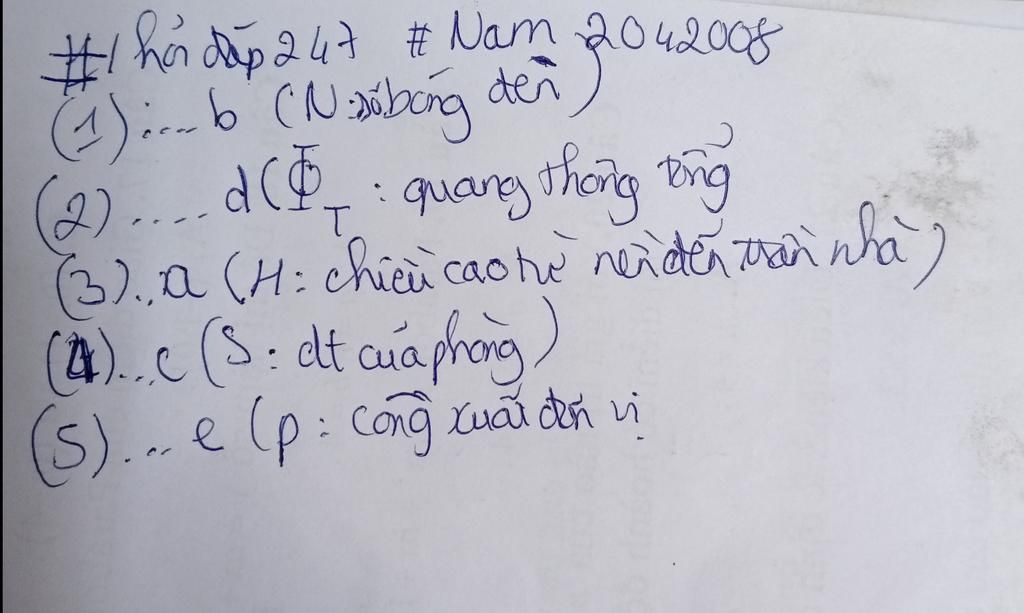 #hỏi đáp 247 # Nam 2042008
(1) :.... b (N: số bóng đèn)
(2) .... d (Φ_T : quang thông tổng
(3) .. a (H : chiều cao từ nền đến trần nhà)
(4) ... c (S : dt của phòng)
(5) ... e (p : công xuất đơn vị